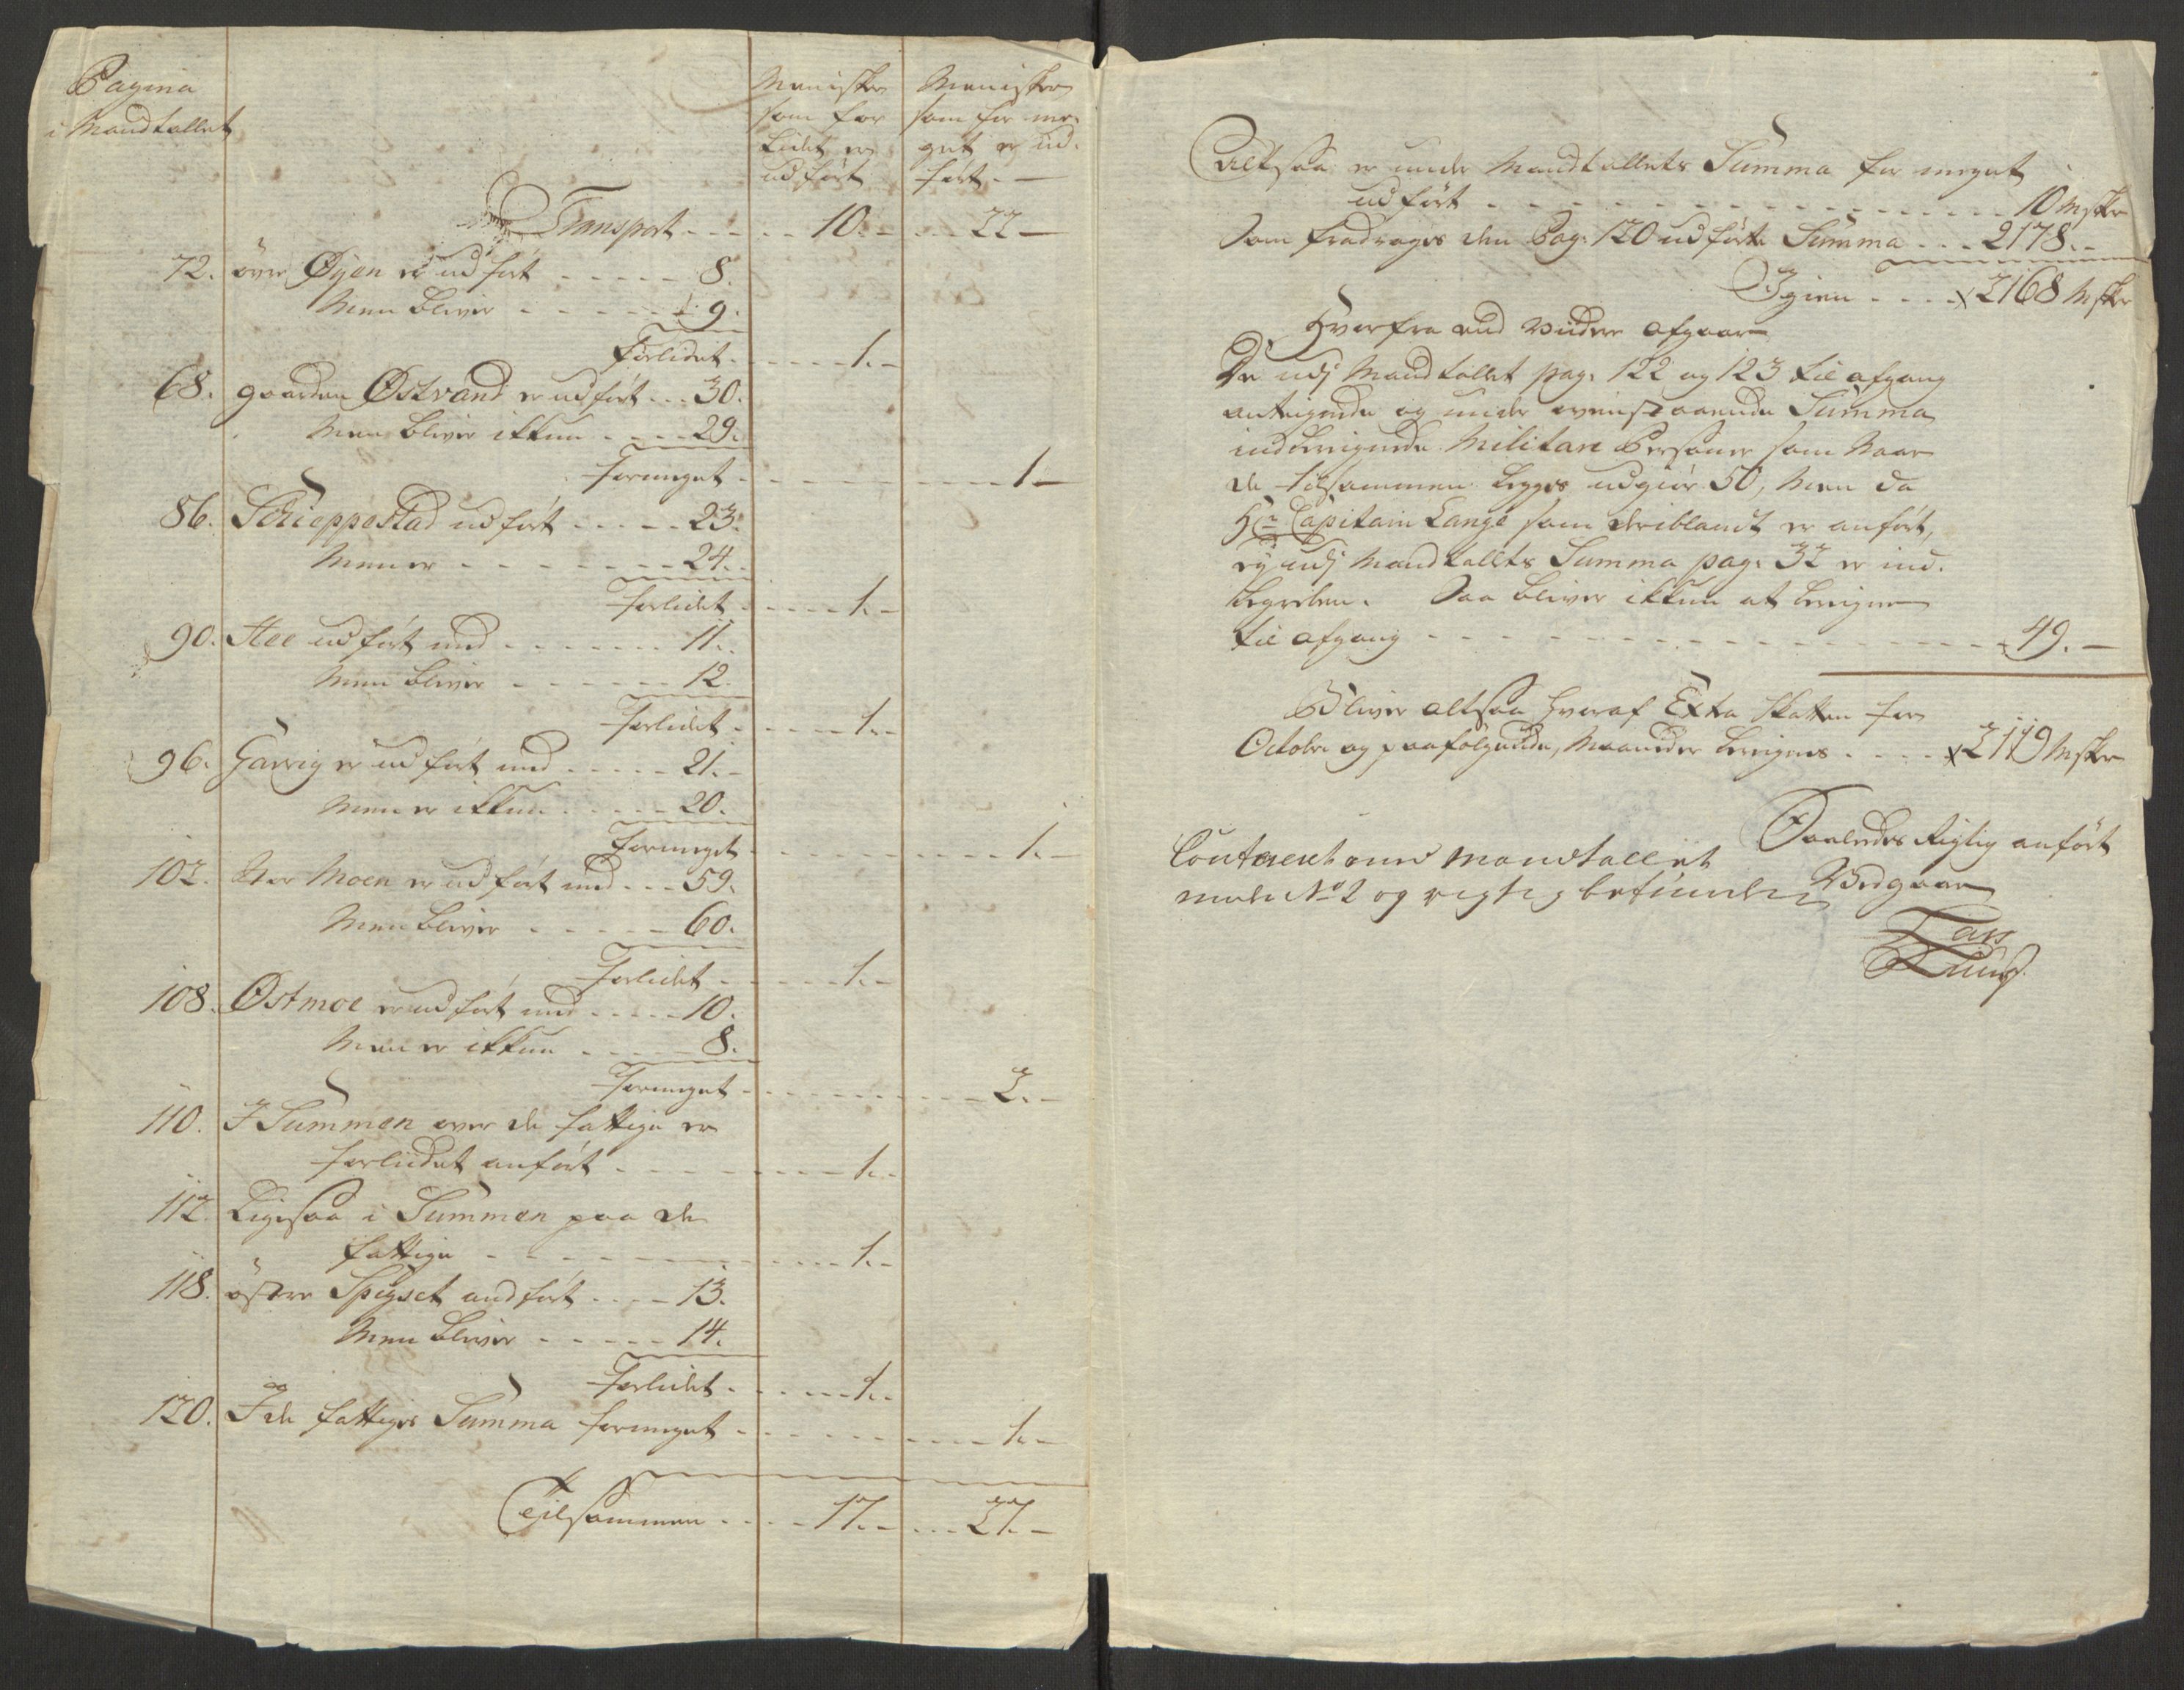 Pagina
i Mandtallet
Mennisker
som for
lidet er
udført
Mennisker
som for me-
get er ud-
ført. —
Transport - - - - 10. - - - 22 —
72. øvre Øyen er udført - - - - - 8.
Men bliver - - - - - 9.
forlidet - - - - 1. -
68. gaarden Østvand er udført - - - 30.
Men bliver ikkun - - - - 29.
formeget - - - - - - - - 1 -
86. Schieppestad udført - - - - - 23.
Men er - - - - - - - 24. -
forlidet - - - - 1. -
90. Aee udført med - - - - - - 11. -
Men bliver - - - - - - 12.
forlidet - - - - 1. -
96. Garrig er udført med - - - - - 21. -
Men er ikkun - - - - - 20.
formeget - - - - - - - - 1. -
102. Moen er udført med - - - 59.
Men bliver - - - - - 60.
forlidet - - - - 1. -
108. Østmoe er udført med - - - - - 10.
Men er ikkun - - - - - 8.
formeget - - - - - - - - 2. -
110. I Summen over de fattige er
forlidet anført - - - - - - - 1. -
112. Ligesaa i Summen paa de
fattige - - - - - - - - - 1. -
118. østre Spigset audført - - - - 13.
Men bliver - - - - - 14.
forlidet - - - - 1. -
120. I de fattiges Summa formeget - - - - - - - - 1. -
Tilsammen - - - - 17. - - - - 27. -
Altsaa er under Mandtallets Summa for meget
udført - - - - - - - - - - - - - 10 Mskr
Som fradrages den Pag: 120 udførte Summa - - - 2178. -
Igien - - - - 2168 Mskr
Hvorfra end videre afgaar
De udj Mandtallet pag: 122 og 123 til afgang
antegnede og under ovenstaaende Summa
indberegnede Militare Personer som Naar
de tilsammen legges udgiør 50, Men da
Hr: Capitain Lange som deriblandt er anført,
ey udj Mandtallets Summa pag: 32 er ind-
begreben. Saa bliver ikkun at beregne
til afgang - - - - - - - - - - - - - - 49. -
Bliver altsaa hvoraf Extra Skatten for
Octobr og paafølgende Maaneder beregnes - - - - 2119 Mskr
Saaledes Rigtig anført
Vedgaar
Lars
Conf med Mandtallet
under No 2 og rigtig befunden